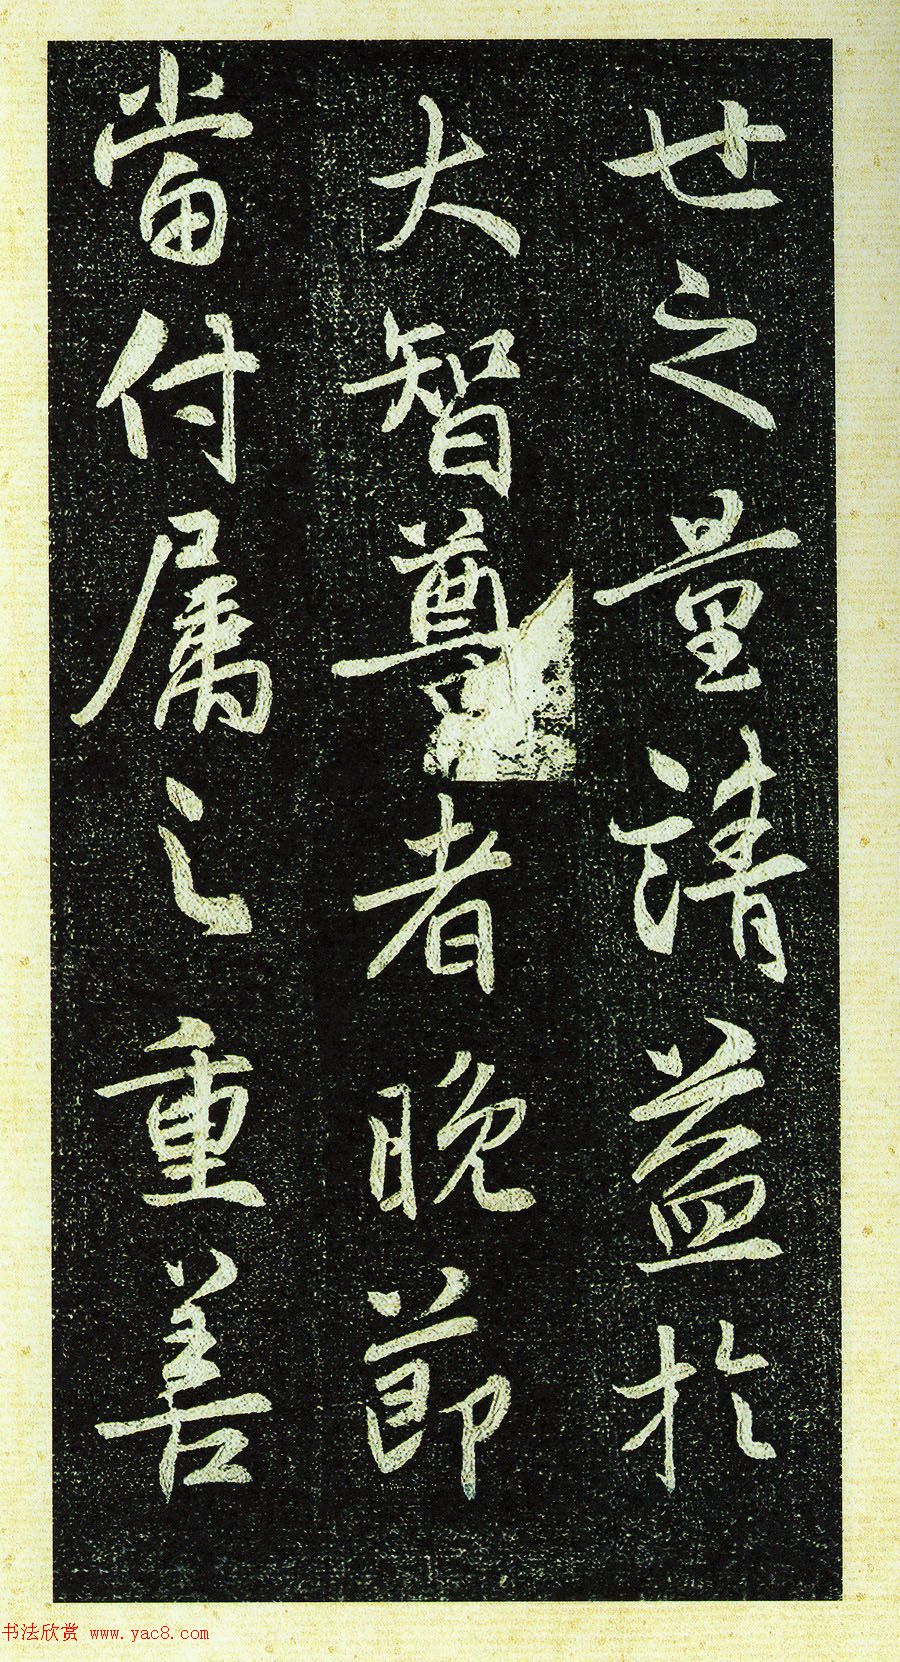 世之量請益於
大智尊者晚節
當付属之重善
书法欣赏 www.yac8.com